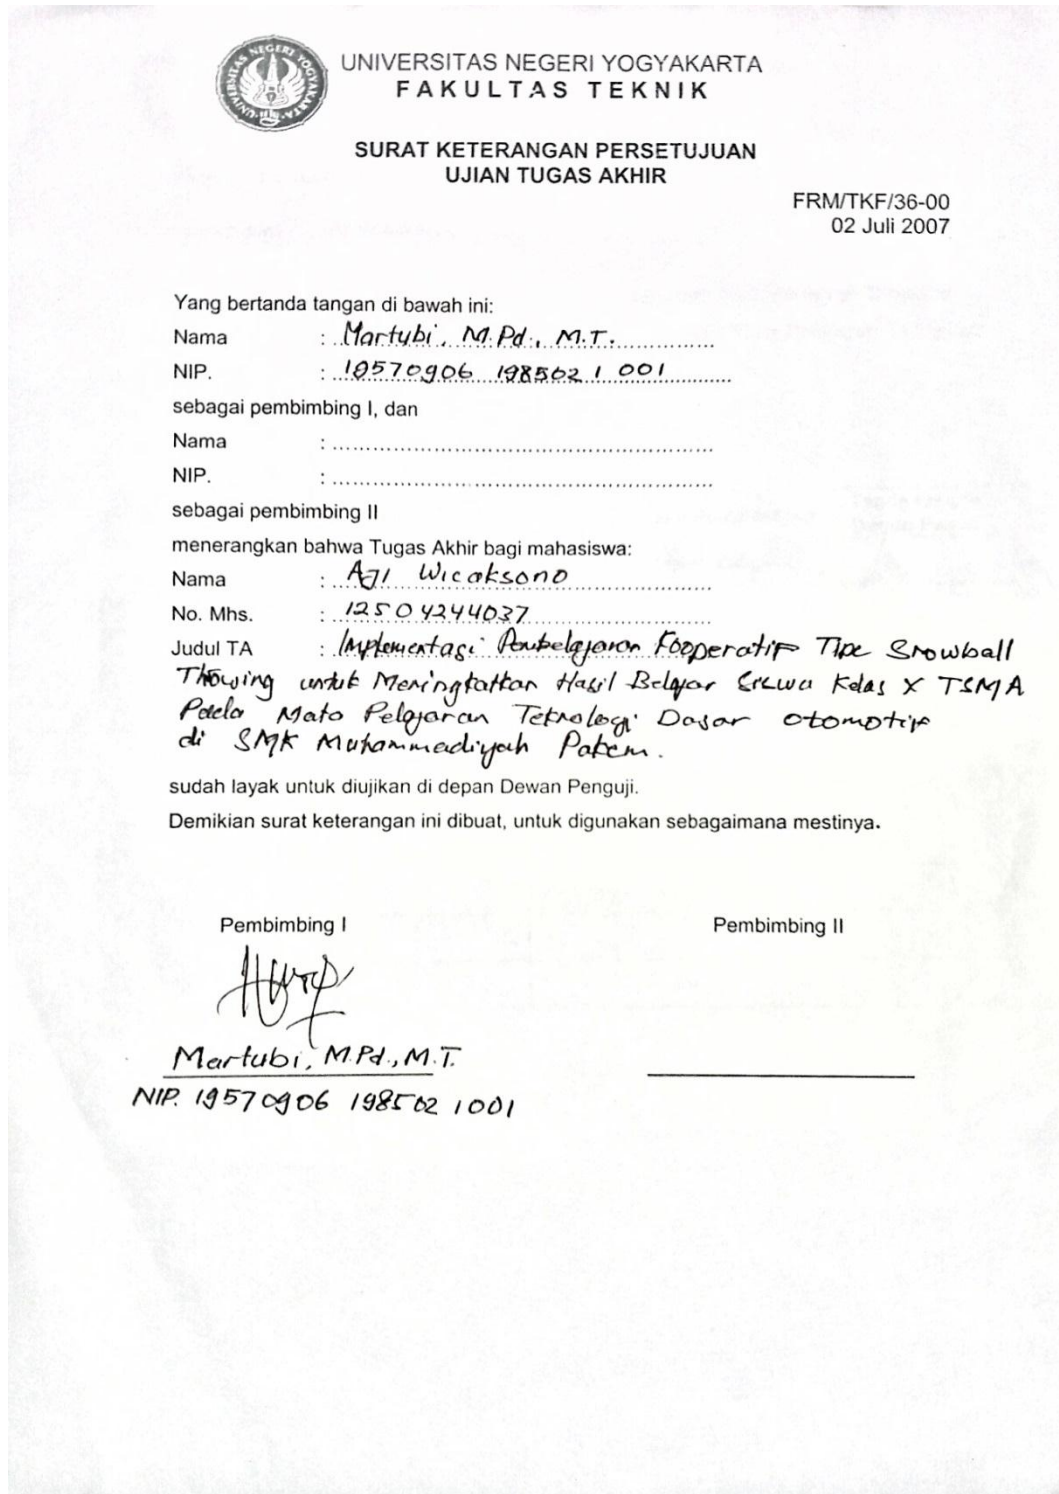 UNIVERSITAS NEGERI YOGYAKARTA
UNIVERSITAS NEGERI YOGYAKARTA
FAKULTAS TEKNIK
SURAT KETERANGAN PERSETUJUAN
UJIAN TUGAS AKHIR
FRM/TKF/36-00
02 Juli 2007
Yang bertanda tangan di bawah ini:
Nama : Martubi, M.Pd., M.T.
NIP. : 19570906 198502 1 001
sebagai pembimbing I, dan
Nama :
NIP. :
sebagai pembimbing II
menerangkan bahwa Tugas Akhir bagi mahasiswa:
Nama : Aji Wicaksono
No. Mhs. : 12504244037
Judul TA : Implementasi Pembelajaran Kooperatif Tipe Snowball
Throwing untuk Meningkatkan Hasil Belajar Siswa Kelas X TSMA
Pada Mata Pelajaran Teknologi Dasar Otomotif
di SMK Muhammadiyah Pakem.
sudah layak untuk diujikan di depan Dewan Penguji.
Demikian surat keterangan ini dibuat, untuk digunakan sebagaimana mestinya.
Pembimbing I
Pembimbing II
Martubi, M.Pd., M.T.
NIP. 19570906 198502 1001